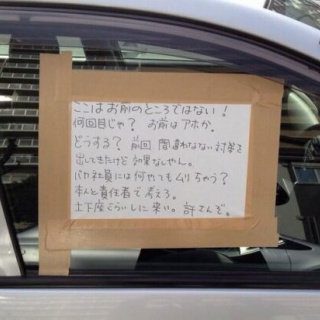 ここはお前のところではない!
何回目じゃ? お前はアホか。
どうする? 前回 間違わない対策を
出してきたけど 効果なしやん。
バカ社員には何やてもムリちゃう?
本人と責任者で考えろ。
土下座くらいしに来い。許さんぞ。